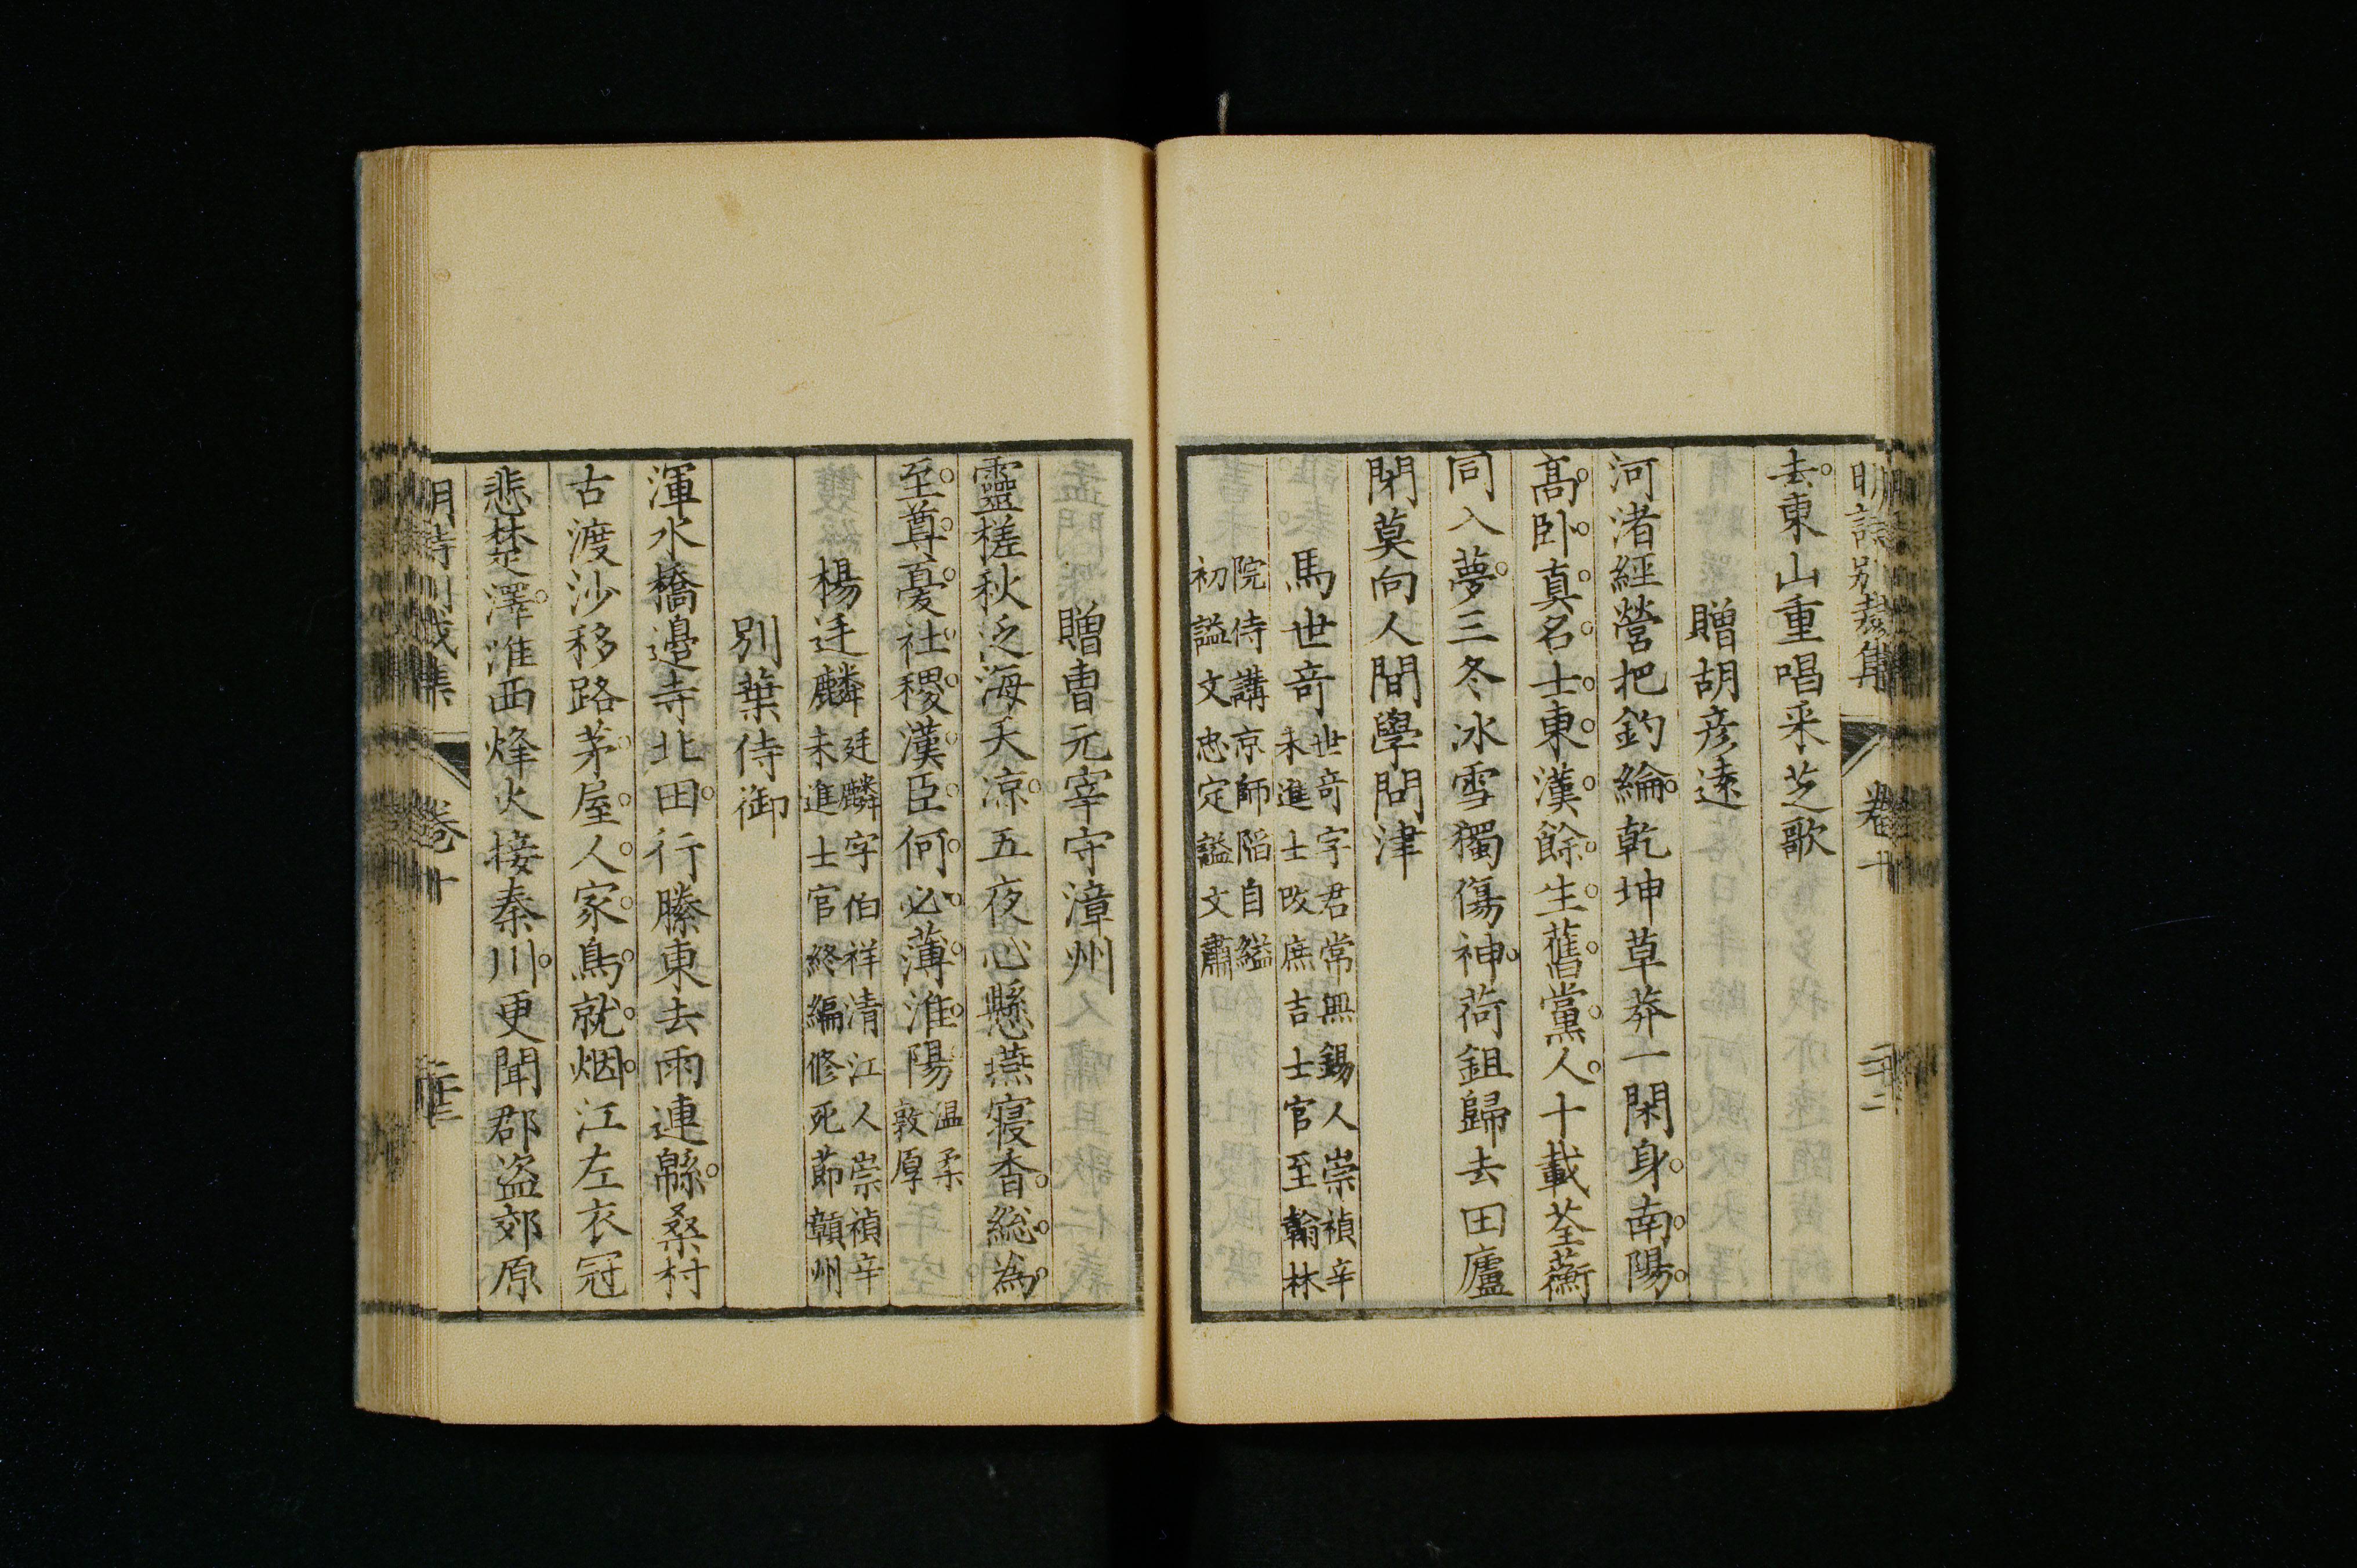 明詩別裁集 卷十
去東山重唱采芝歌
贈胡彦遠
河渚經營把釣綸乾坤草莽一閑身南陽
高卧真名士東漢餘生舊黨人十載荃蘅
同入夢三冬冰雪獨傷神荷鉏歸去田廬
閉莫向人間學問津
馬世竒世竒字君常無錫人崇禎辛
未進士改庶吉士官至翰林
院侍講京師陷自縊
初謚文忠定謚文肅
贈曹元宰守漳州
靈槎秋泛海天凉五夜心懸燕寝香総為
至尊憂社稷漢臣何必薄淮陽温柔
敦厚
楊廷麟廷麟字伯祥清江人崇禎辛
未進士官終編修死節贑州
別葉侍御
渾水橋邊寺北田行縢東去雨連緜桑村
古渡沙移路茅屋人家鳥就烟江左衣冠
悲楚澤淮西烽火接秦川更聞郡盗郊原
卷十